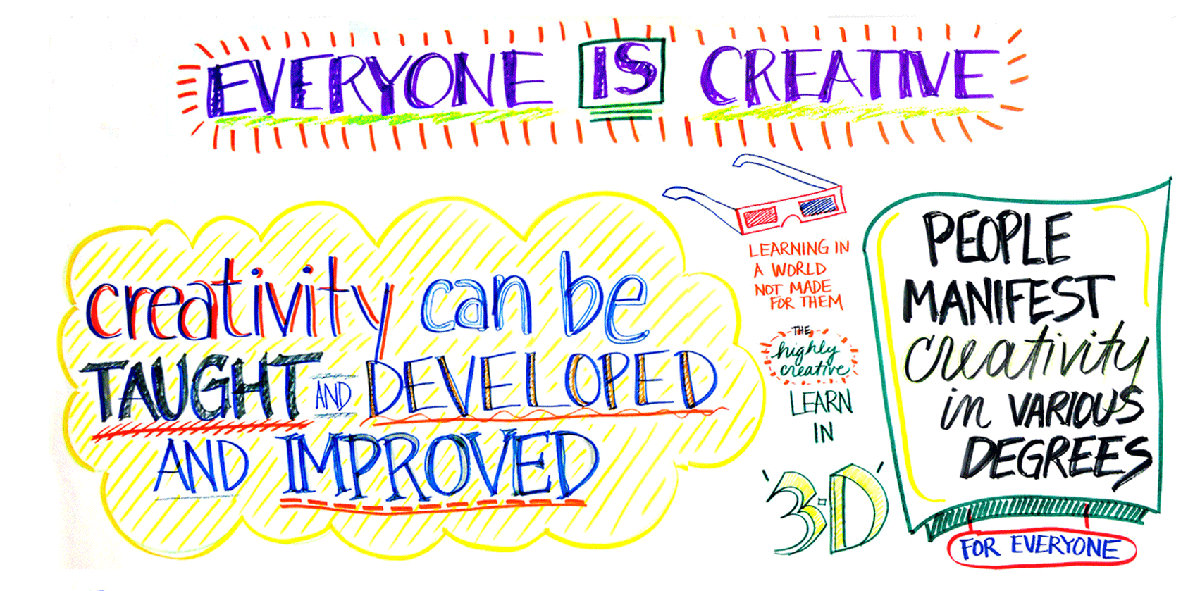 EVERYONE IS CREATIVE
creativity can be
TAUGHT AND DEVELOPED
AND IMPROVED
LEARNING IN
A WORLD
NOT MADE
FOR THEM
THE
highly
creative
LEARN
IN
'3-D'
PEOPLE
MANIFEST
creativity
in VARIOUS
DEGREES
FOR EVERYONE